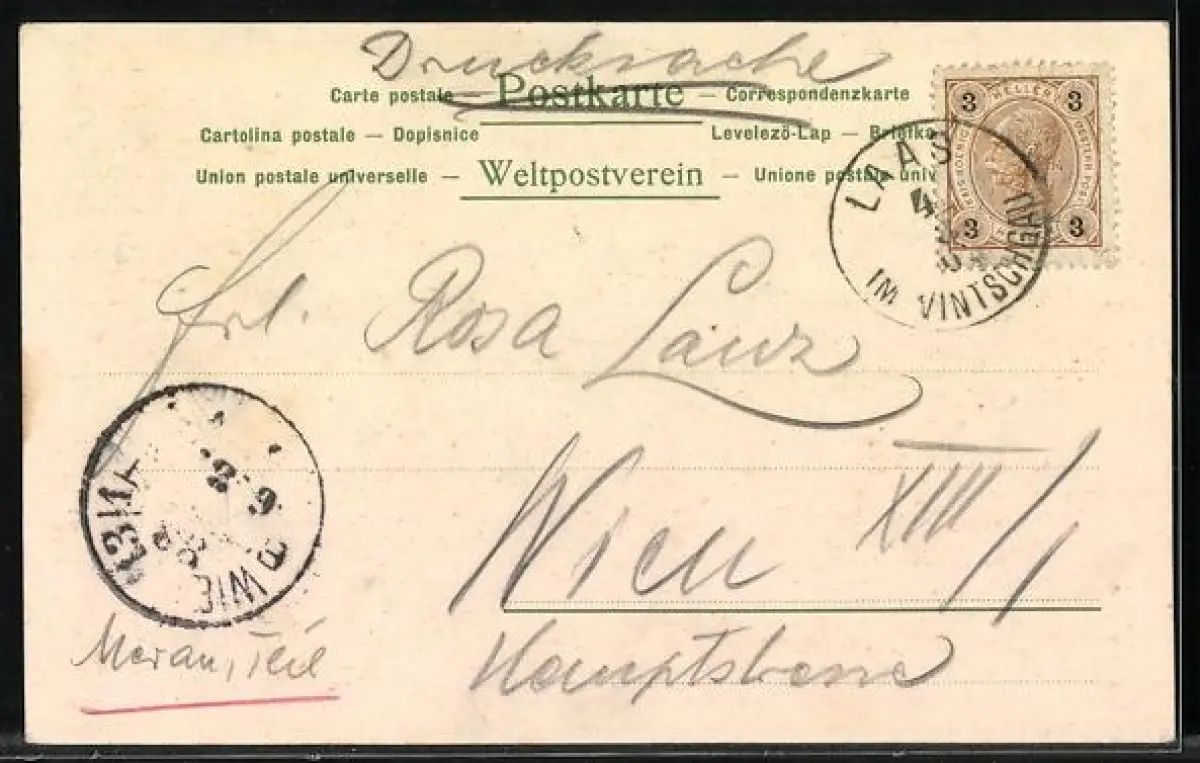 Drucksache
Carte postale — Postkarte — Correspondenzkarte
Cartolina postale — Dopisnice Levelező-Lap — Briefka
Union postale universelle — Weltpostverein — Unione postale univ
3 HELLER 3
3 3
LAAS
4
IM VINTSCHGAU
Frl. Rosa Lanz
Wien XIII/1
Hauptstrasse
13/1
WIE
Meran, Teil